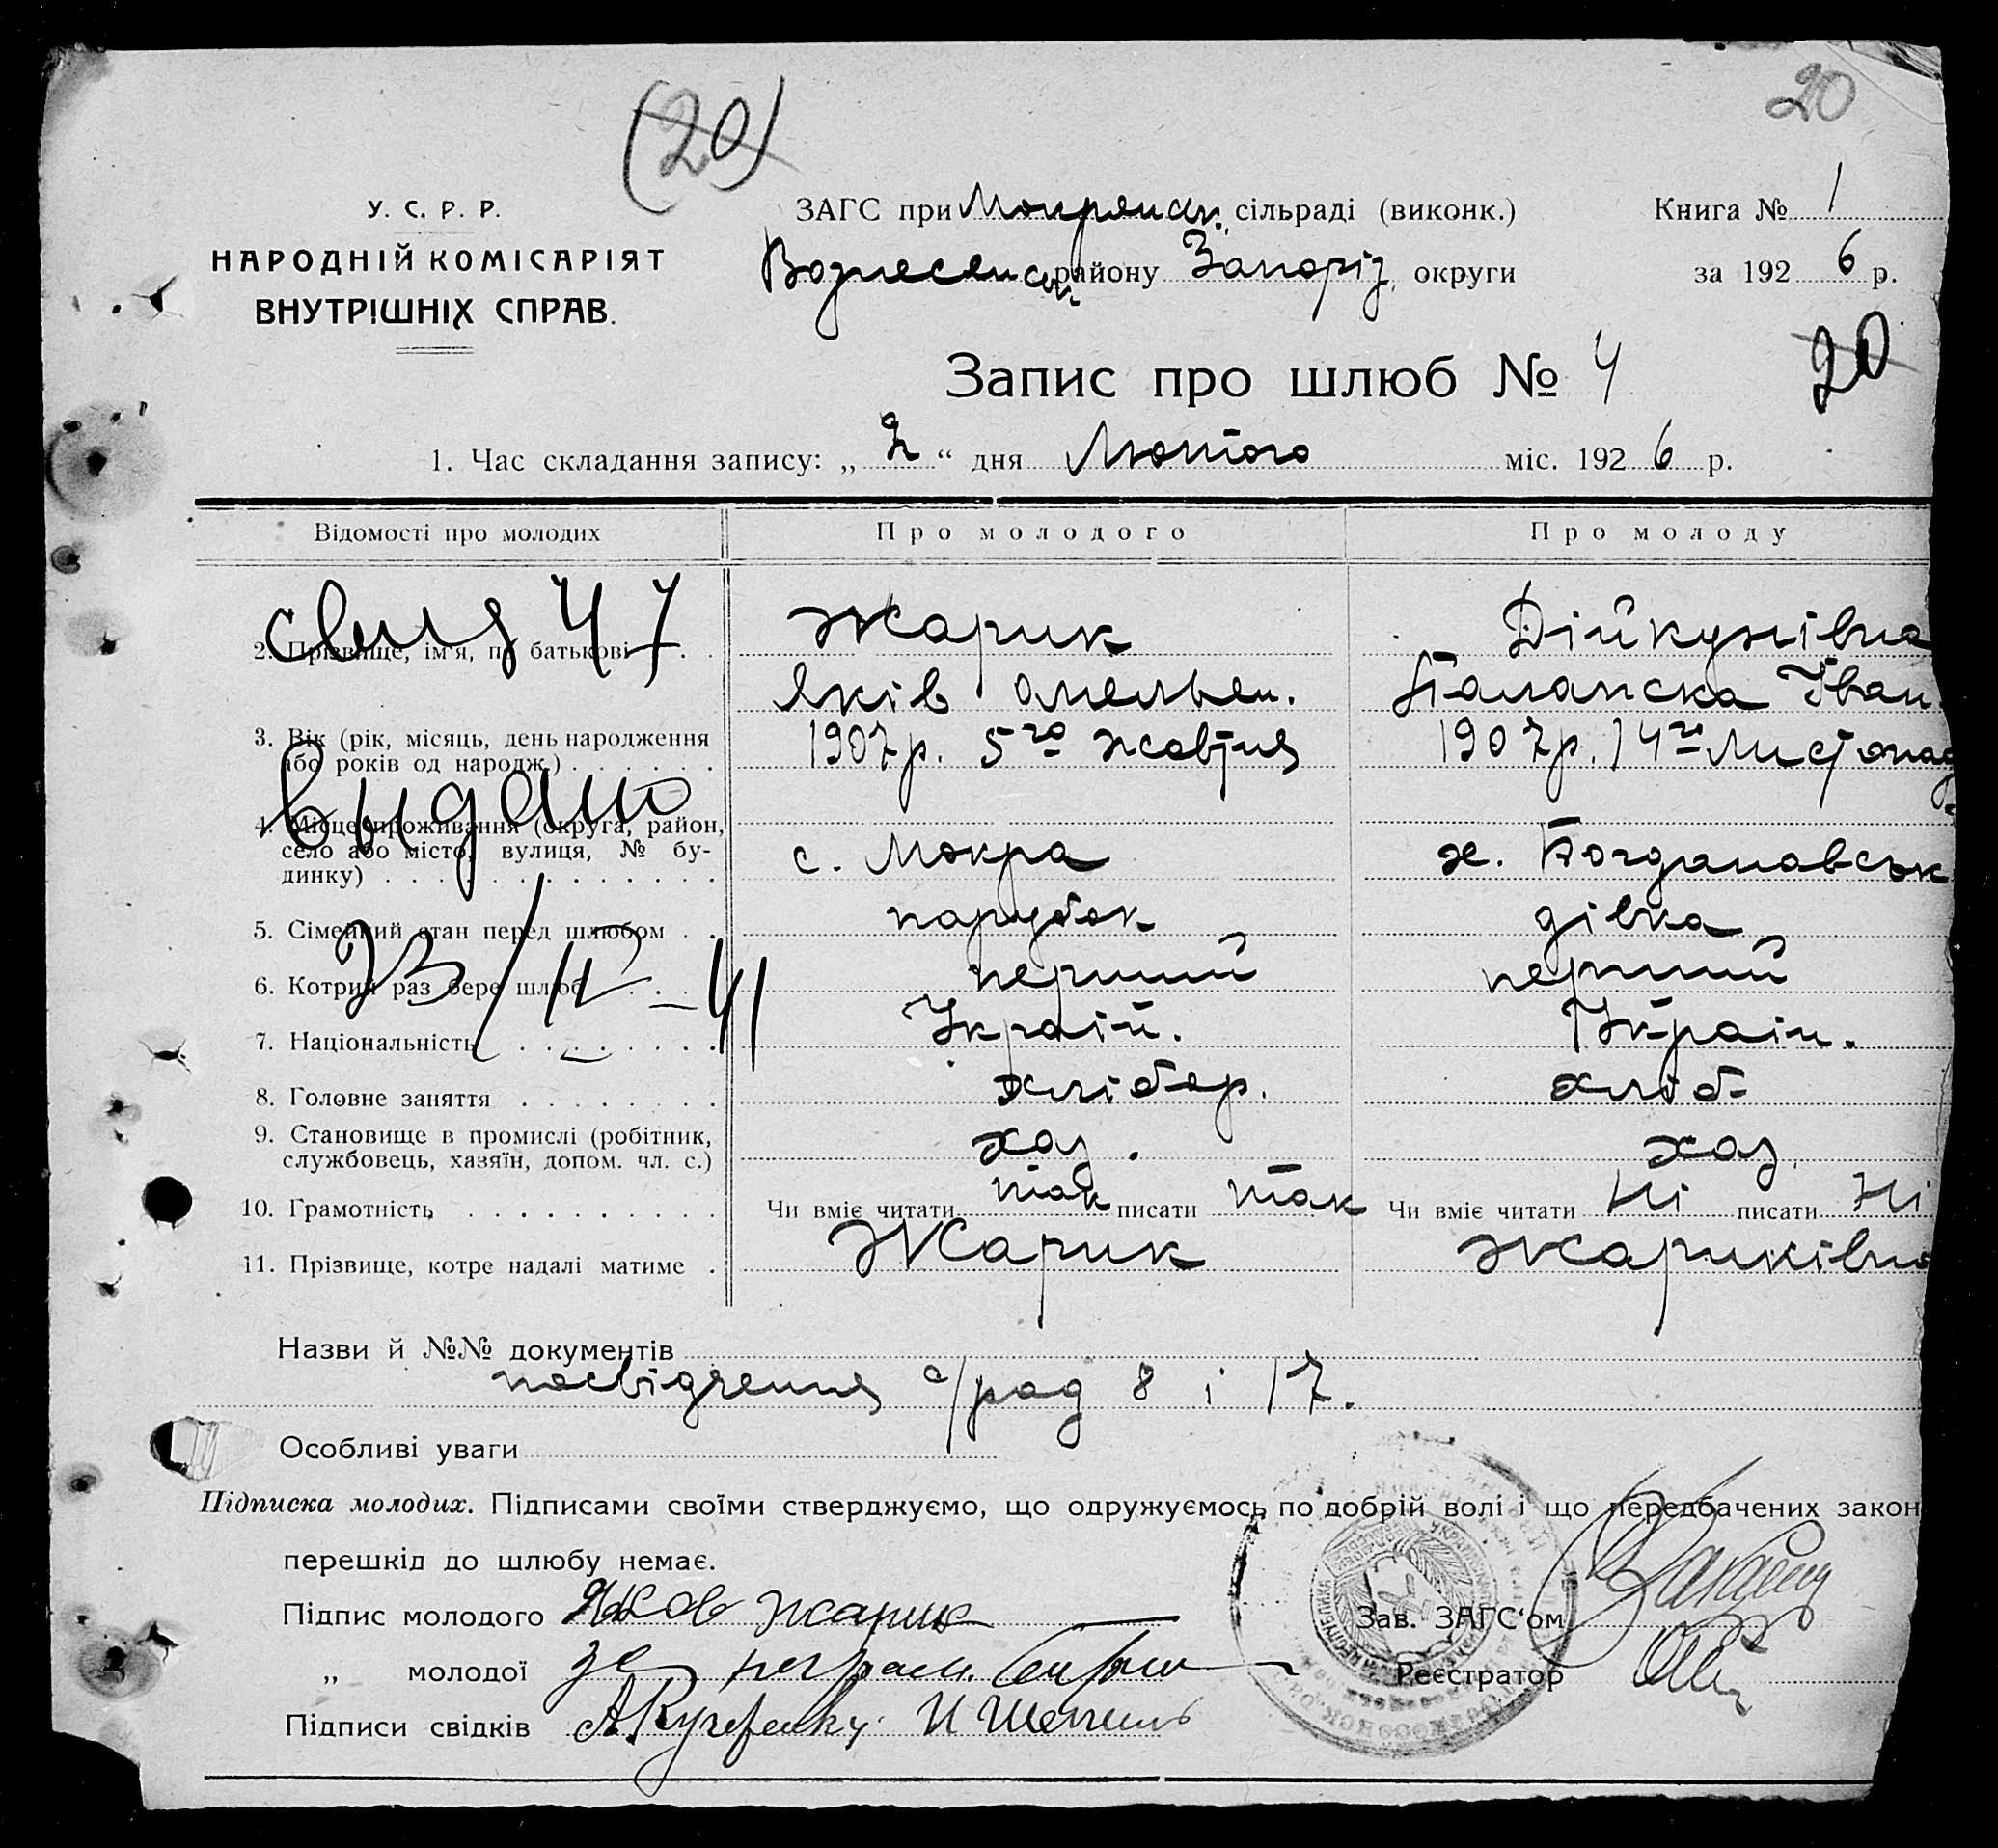 (20)
20
У. С. Р. Р.
НАРОДНІЙ КОМІСАРІЯТ
ВНУТРІШНІХ СПРАВ.
ЗАГС при Мокрянск. сільраді (виконк.)
Книга № 1
Вознесенськ району Запоріз. округи
за 1926 р.
Запис про шлюб № 4
20
1. Час складання запису: „ 2 “ дня Лютого міс. 1926 р.
Відомості про молодих
Про молодого
Про молоду
2. Прізвище, ім'я, по батькові
Жарик
Дійкунівна
Яків Омельян.
Палажка Іван.
3. Вік (рік, місяць, день народження
або років од народж.)
1907 р. 5го жовтня
1907 р. 14го Листопад
4. Місце проживання (округа, район,
село або місто, вулиця, № бу-
динку)
с. Мокра
х. Богдановськ
5. Сімейний стан перед шлюбом
парубок
дівка
6. Котрий раз бере шлюб
перший
перший
7. Національність
Украін.
Украін.
8. Головне заняття
хлібор.
хліб-
9. Становище в промислі (робітник,
службовець, хазяїн, допом. чл. с.)
хаз.
хаз.
10. Грамотність
Чи вміє читати так писати так
Чи вміє читати Ні писати Ні
11. Прізвище, котре надалі матиме
Жарик
Жариківна
выдано
23/IV-41
Назви й №№ документів
посвідчення с/рад 8 і 17.
Особливі уваги
Підписка молодих. Підписами своїми стверджуємо, що одружуємось по добрій волі і що передбачених закон
перешкід до шлюбу немає.
Підпис молодого Яков Жарик
Зав. ЗАГС'ом
„ молодої за неграм.
Реєстратор
Підписи свідків А Кучеренку